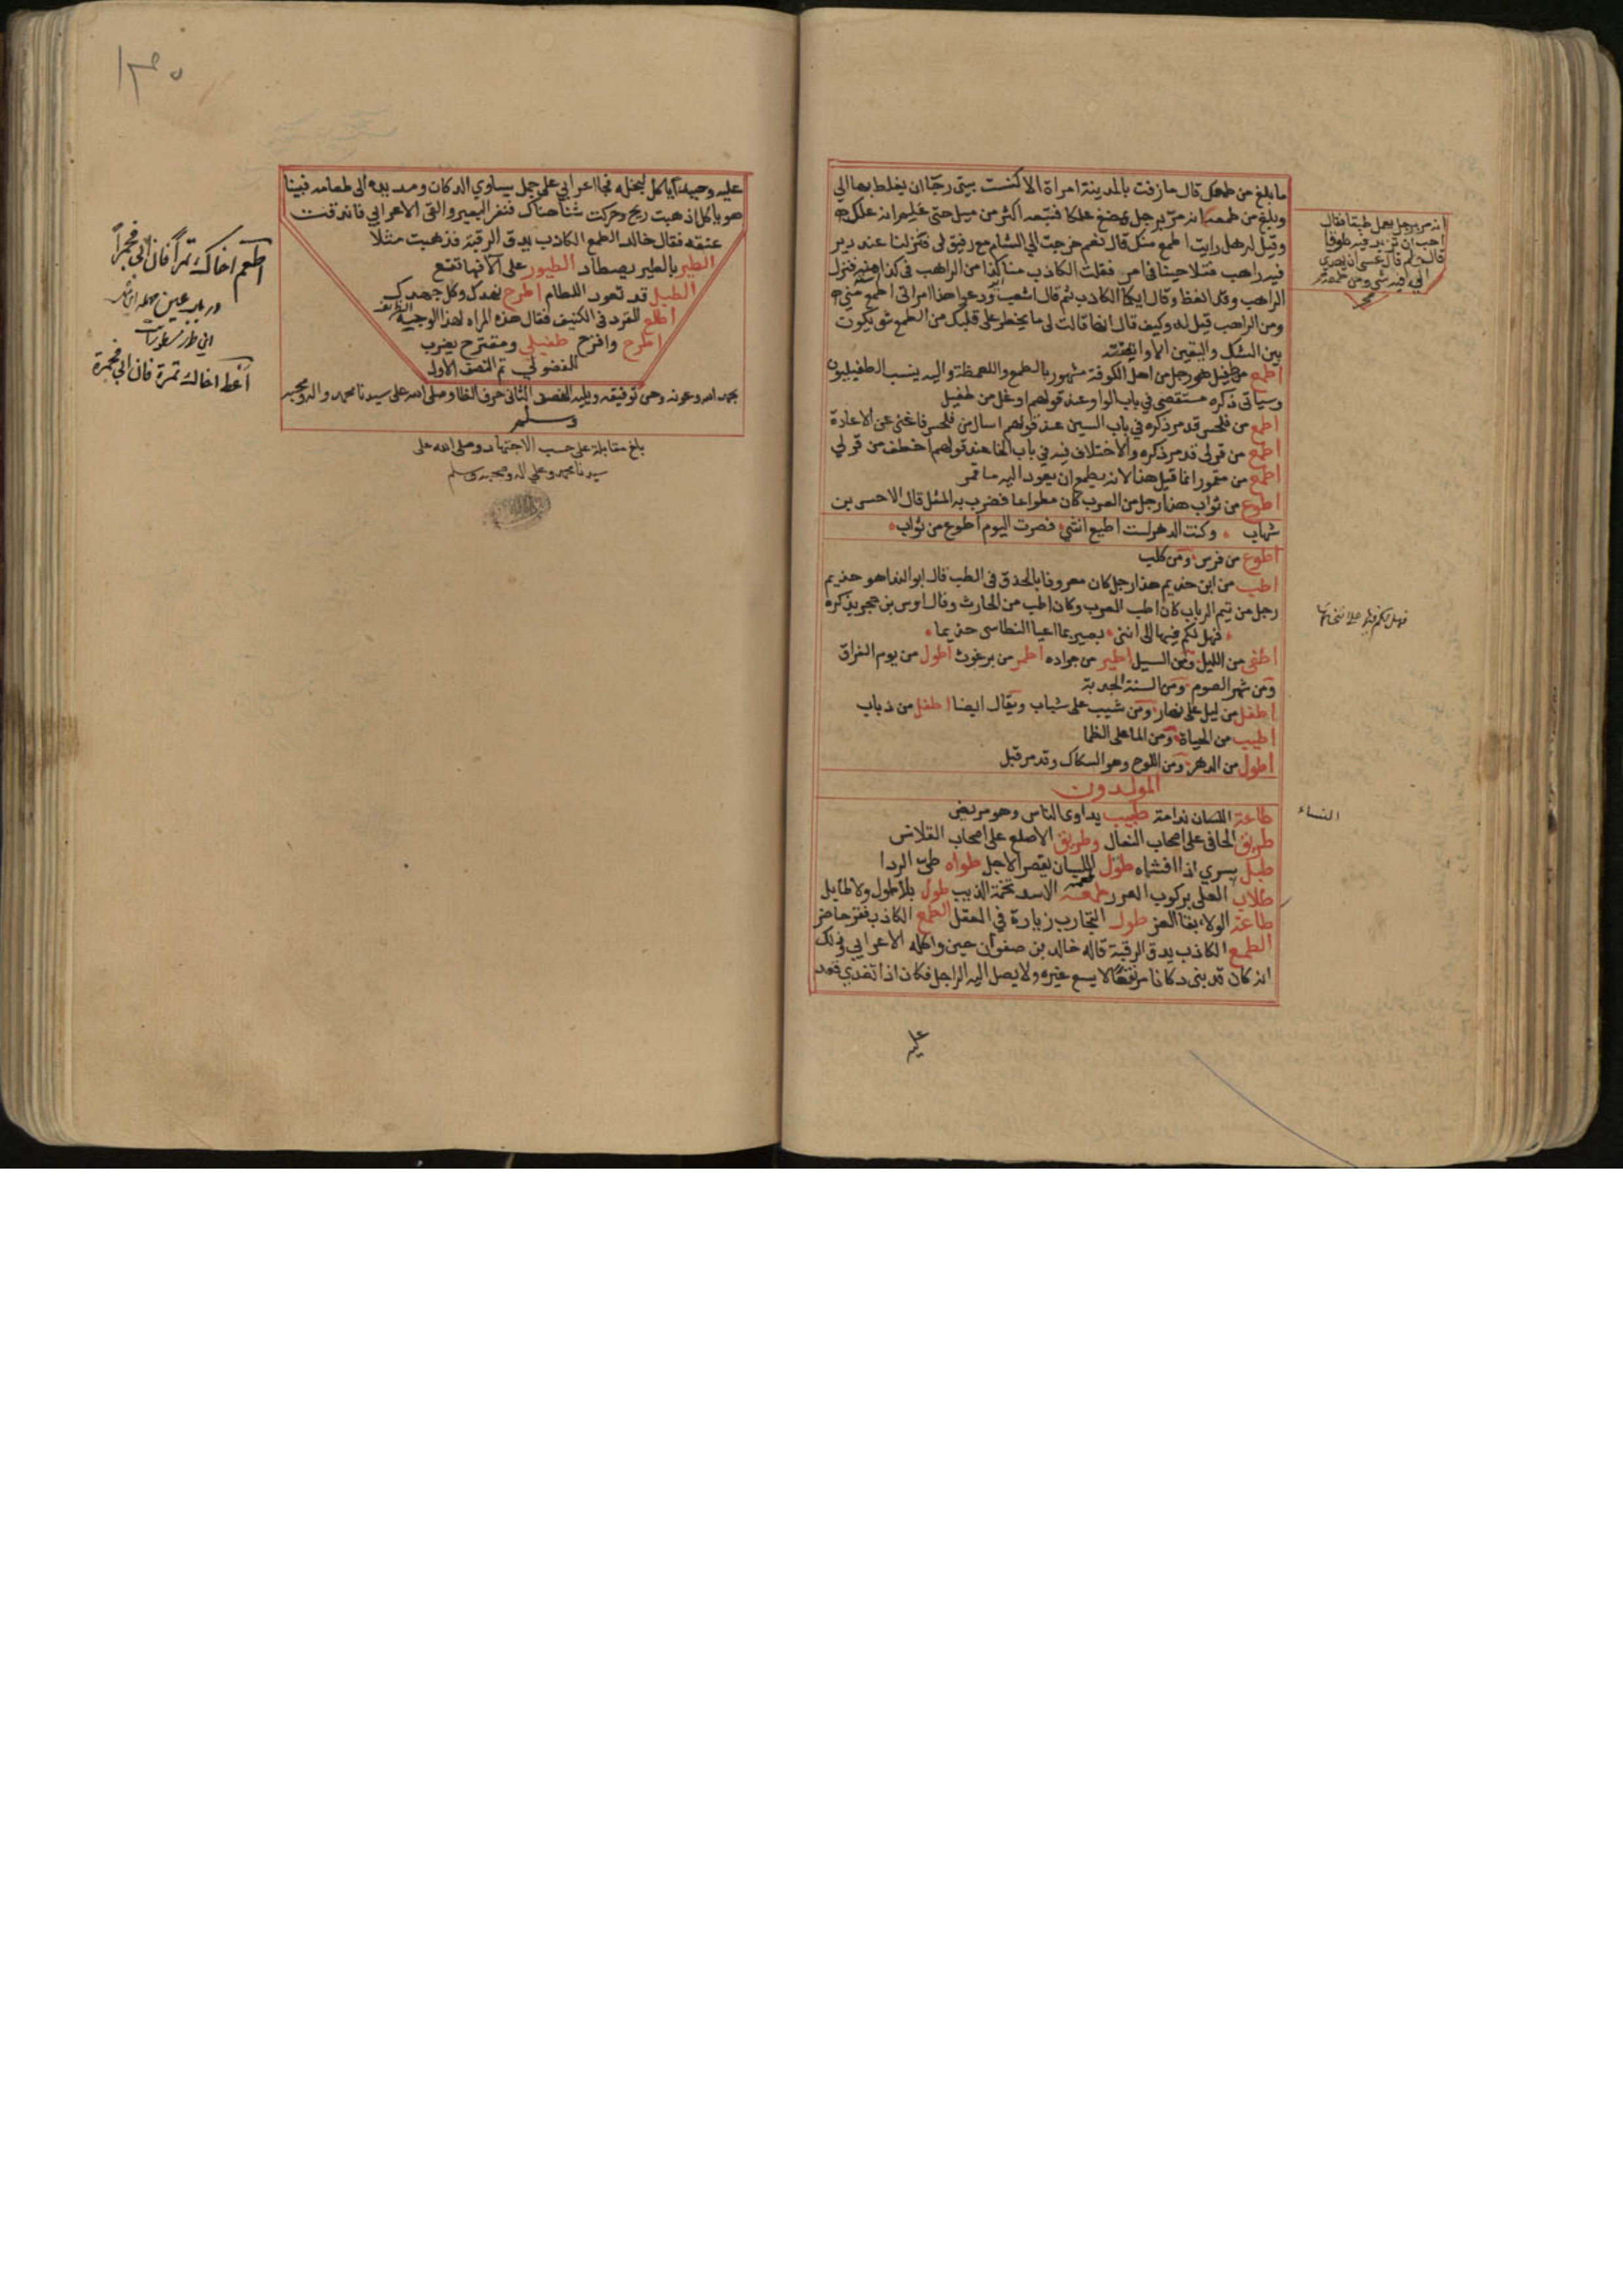 ما بلغ من طمعك قال ما زفت بالمدينة امراة الا كنست بيتى رجا ان يغلط بها الي
وبلغ من طمعه انه مر برجل يمضغ علكا فتبعه اكثر من ميل حتى علم انه علك
وقيل له هل رايت اطمع منك قال نعم خرجت الي الشام مع رفيق لى فنزلنا عند دير
فيه راهب فتلاحينا في امر فقلت الكاذب منا كذا من الراهب فى كذا منه فنزل
الراهب وقد انعظ وقال ايكما الكاذب ثم قال اشعب ودعوا هذا امراتى اطمع مني
ومن الراهب قيل له وكيف قال انها قالت لى ما يخطر على قلبك من الطمع شى يكون
بين الشك واليقين الا وايقنته
اطمع من طفيل هو رجل من اهل الكوفة مشهور بالطمع واللعمظة واليه ينسب الطفيليون
وسياتى ذكره مستقصى في باب الواو عند قولهم اوغل من طفيل
اطمع من فلحس قد مر ذكره في باب السين عند قولهم اسال من فلحس فاغنى عن الاعادة
اطمع من قرلى قد مر ذكره والاختلاف فيه في باب الخا عند قولهم اخطف من قرلي
اطمع من مقمور انما قيل هذا لانه يطمع ان يعود اليه ما قمر
اطوع من ثواب هذا رجل من العرب كان مطواعا فضرب به المثل قال الاحسن بن
شهاب وكنت الدهر لست اطيع انثى فصرت اليوم اطوع من ثواب
اطوع من فرس ومن كلب
اطب من ابن حذيم هذا رجل كان معروفا بالحذق فى الطب قال ابو الندا هو حذيم
رجل من تيم الرباب كان اطب العرب وكان اطب من الحارث وقال اوس بن حجر يذكره
فهل لكم فيها الى اننى بصير بما اعيا النطاسى حذيما
اطغى من الليل ومن السيل اطير من جراده اطمر من برغوث اطول من يوم الفراق
ومن شهر الصوم ومن السنة الجدبة
اطفل من ليل على نهار ومن شيب على شباب ويقال ايضا اطفل من ذباب
اطيب من الحياة ومن الما على الظما
اطول من الدهر ومن اللوح وهو السكاك وقد مر قبل
المولدون
طاعة اللسان ندامة طبيب يداوى الناس وهو مريض
طريق الحافى على اصحاب النعال وطريق الاصلع على اصحاب القلانس
طبل بسري اذا افشاه طول اللسان يقصر الاجل طواه طى الردا
طلاب العلى بركوب الغرر طعمة الاسد تخمة الذيب طول بلا طول ولا طايل
طاعة الولاه بقا العز طول التجارب زيادة في العقل الطمع الكاذب فقر حاضر
الطمع الكاذب يدق الرقبة قاله خالد بن صفوان حين واكله الاعرابي وذلك
انه كان قد بنى دكانا مرتفعا لا يسع غيره ولا يصل اليه الراجل فكان اذا تغدى قعد
عليه
انه مر برجل يعمل طبقا فقال
احب ان تزيد فيه طوقا
قال ولم قال عسى ان يهدى
الي فيه شى ومن طمعه
صح
النساء
عليه وحيدا ياكل لبخله فجا اعرابي على جمل يساوي الدكان ومد يده الى طعامه فبينا
هو ياكل اذ هبت ريح وحركت شنا هناك فنفر البعير والقى الاعرابي فاندقت
عنقه فقال خالد الطمع الكاذب يدق الرقبة فذهبت مثلا
الطير بالطير يصطاد الطيور على الافها تقع
الطبل قد تعود اللطام اطرح نهدك وكل جهدك
اطلع القرد فى الكنيف فقال هذه المراه لهذا الوجيه الظريف
اطرح وافرح طفيلي ومقترح يضرب
للفضولي تم النصف الاول
بحمد الله وعونه وحسن توفيقه ويليه النصف الثانى حرف الظا وصلى الله على سيدنا محمد واله وصحبه
وسلم
بلغ مقابلة على حسب الاجتهاد وصلى الله على
سيدنا محمد وعلي اله وصحبه وسلم
اطعم اخاك تمرا فان ابى فجمرا
در باب عين مهمله
أعط اخاك تمرة فان ابى فجمرة